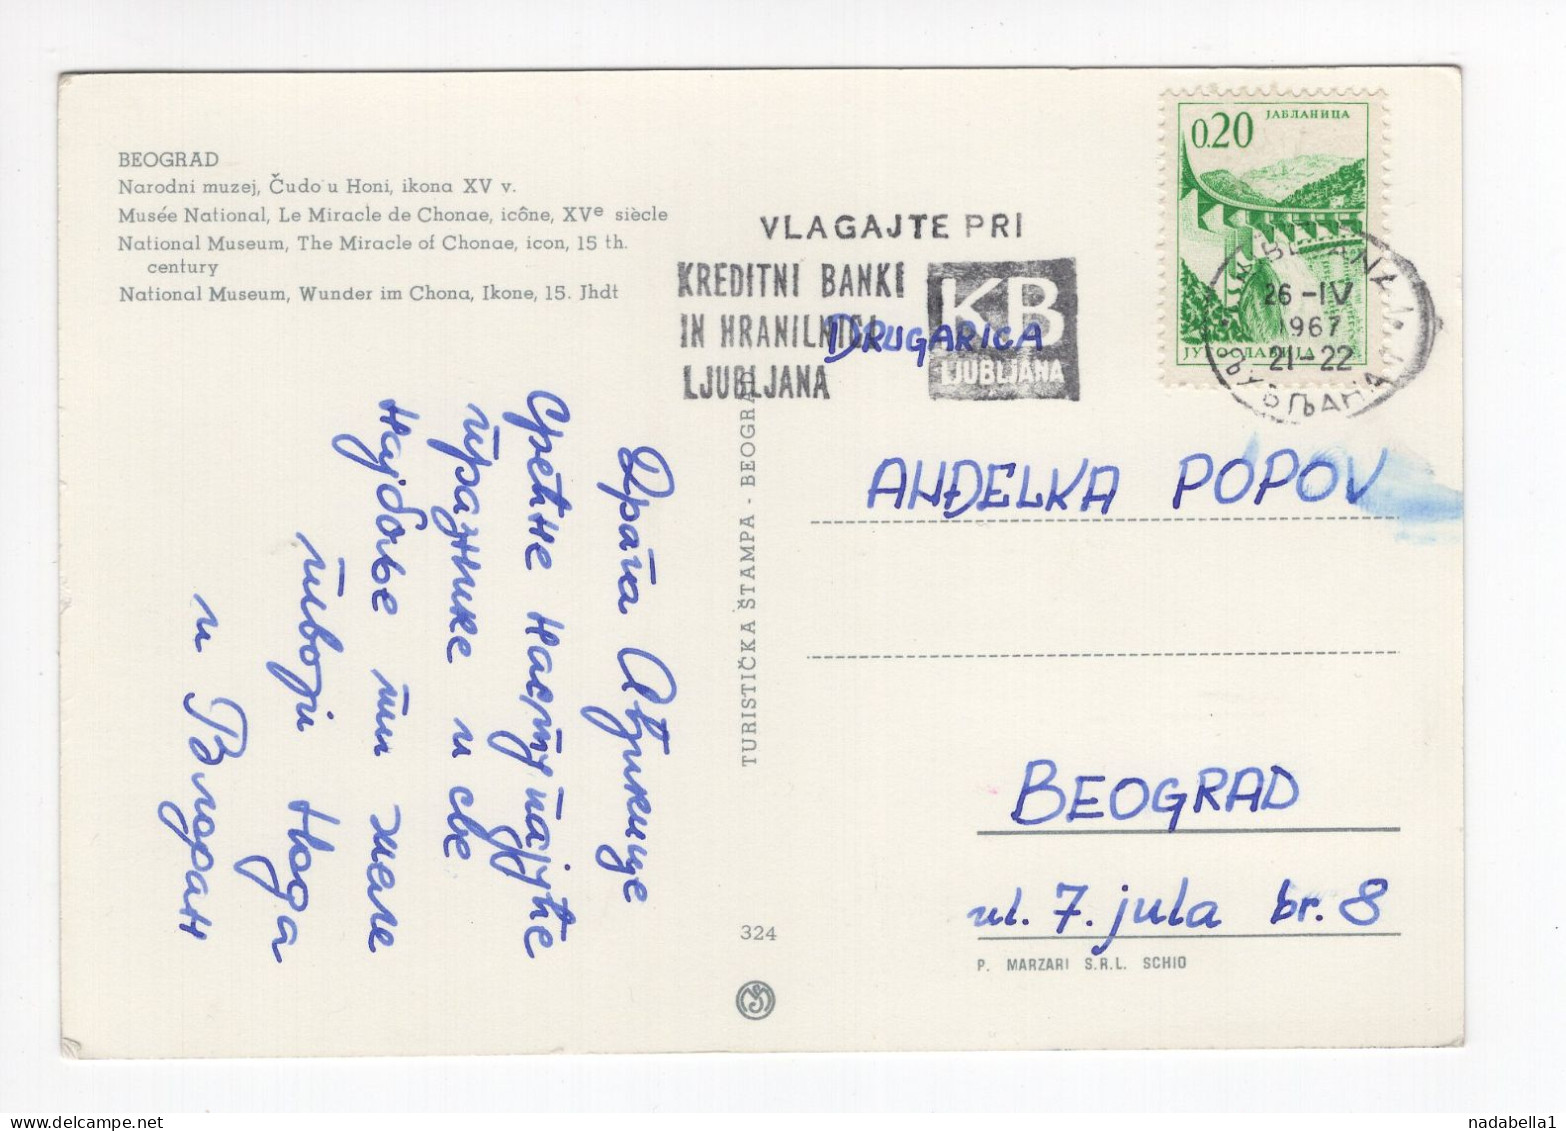 BEOGRAD
Narodni muzej, Čudo u Honi, ikona XV v.
Musée National, Le Miracle de Chonae, icône, XVe siècle
National Museum, The Miracle of Chonae, icon, 15 th.
century
National Museum, Wunder im Chona, Ikone, 15. Jhdt
VLAGAJTE PRI
KREDITNI BANKI
IN HRANILNICI
LJUBLJANA
KB
LJUBLJANA
0.20
ЈАБЛАНИЦА
ЈУГОСЛАВИЈА
26-IV
1967
21-22
ЉУБЉАНА
DRUGARICA
ANĐELKA POPOV
BEOGRAD
ul. 7. jula br. 8
Драга Анђикице
Срећне наступајуће
празнике и све
најбоље ти желе
твоји Нада
и
TURISTIČKA ŠTAMPA - BEOGRAD
324
P. MARZARI S.R.L. SCHIO
delcampe.net
nadabella1